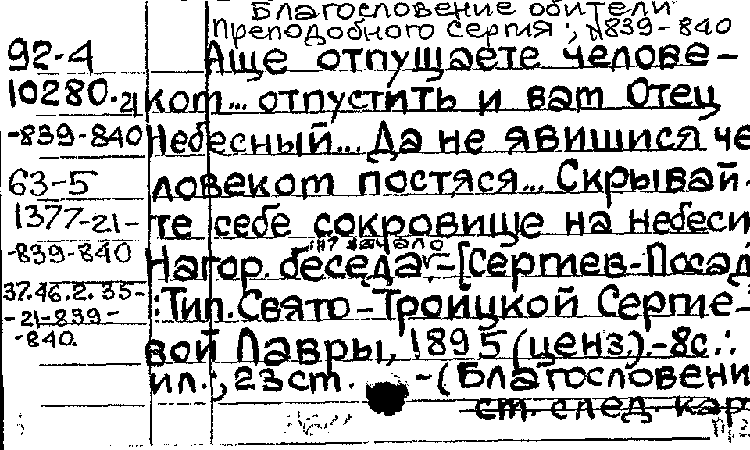 Благословение обители
Преподобного Сергия; №839-840
92-4 Аще отпущаете челове-
10280.21 ком... отпустить и вам Отец
-839-840 Небесный... Да не явишися че
63-5 ловеком постяся... Скрывай-
1377-21- те себе сокровище на небеси
-839-840 Нагор. беседа.-[Сергиев-Посад
37.46.2.35- :Тип.Свято-Троицкой Сергие-
-21-839- вой Лавры, 1895 (ценз.).-8с.:
-840. ил.; 23 ст. -(Благословени
ст. след. кар